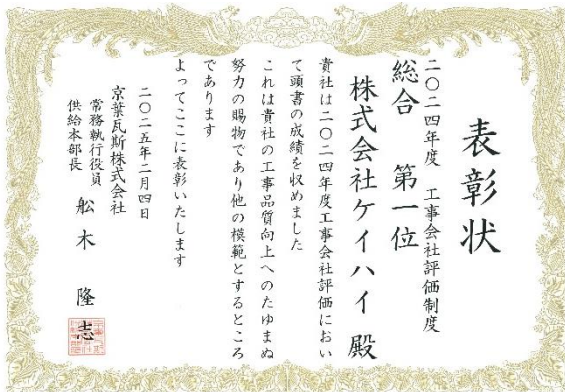 表彰状
二〇二四年度 工事会社評価制度
総合 第一位
株式会社ケイハイ 殿
貴社は二〇二四年度工事会社評価におい
て頭書の成績を収めました
これは貴社の工事品質向上へのたゆまぬ
努力の賜物であり他の模範とするところ
であります
よってここに表彰いたします
二〇二五年二月四日
京葉瓦斯株式会社
常務執行役員
供給本部長
舩木 隆志